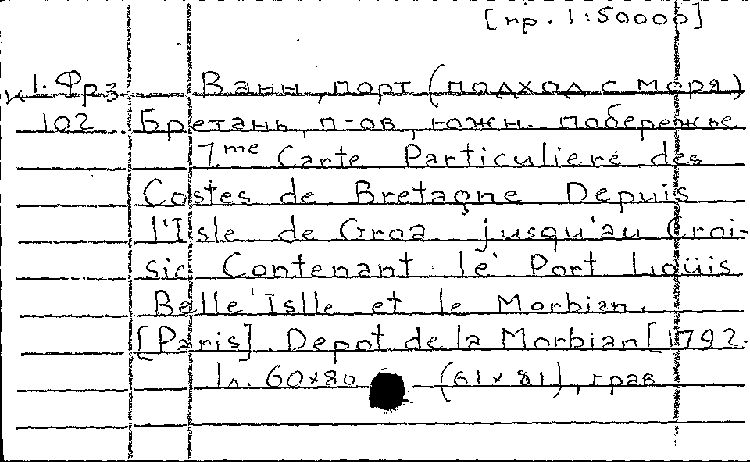 [пр. 1:50000]
К1. Фрз Ванн, порт (подход с моря)
102 Бретань, п-ов, южн. побережье
7.me Carte Particuliere des
Costes de Bretagne Depuis
l'Isle de Groa jusqu'au Croi-
sic Contenant le Port Loüis
Belle Islle et le Morbian.
[Paris] Depot de la Morbian [1792.
1л. 60x80 (61x81), грав